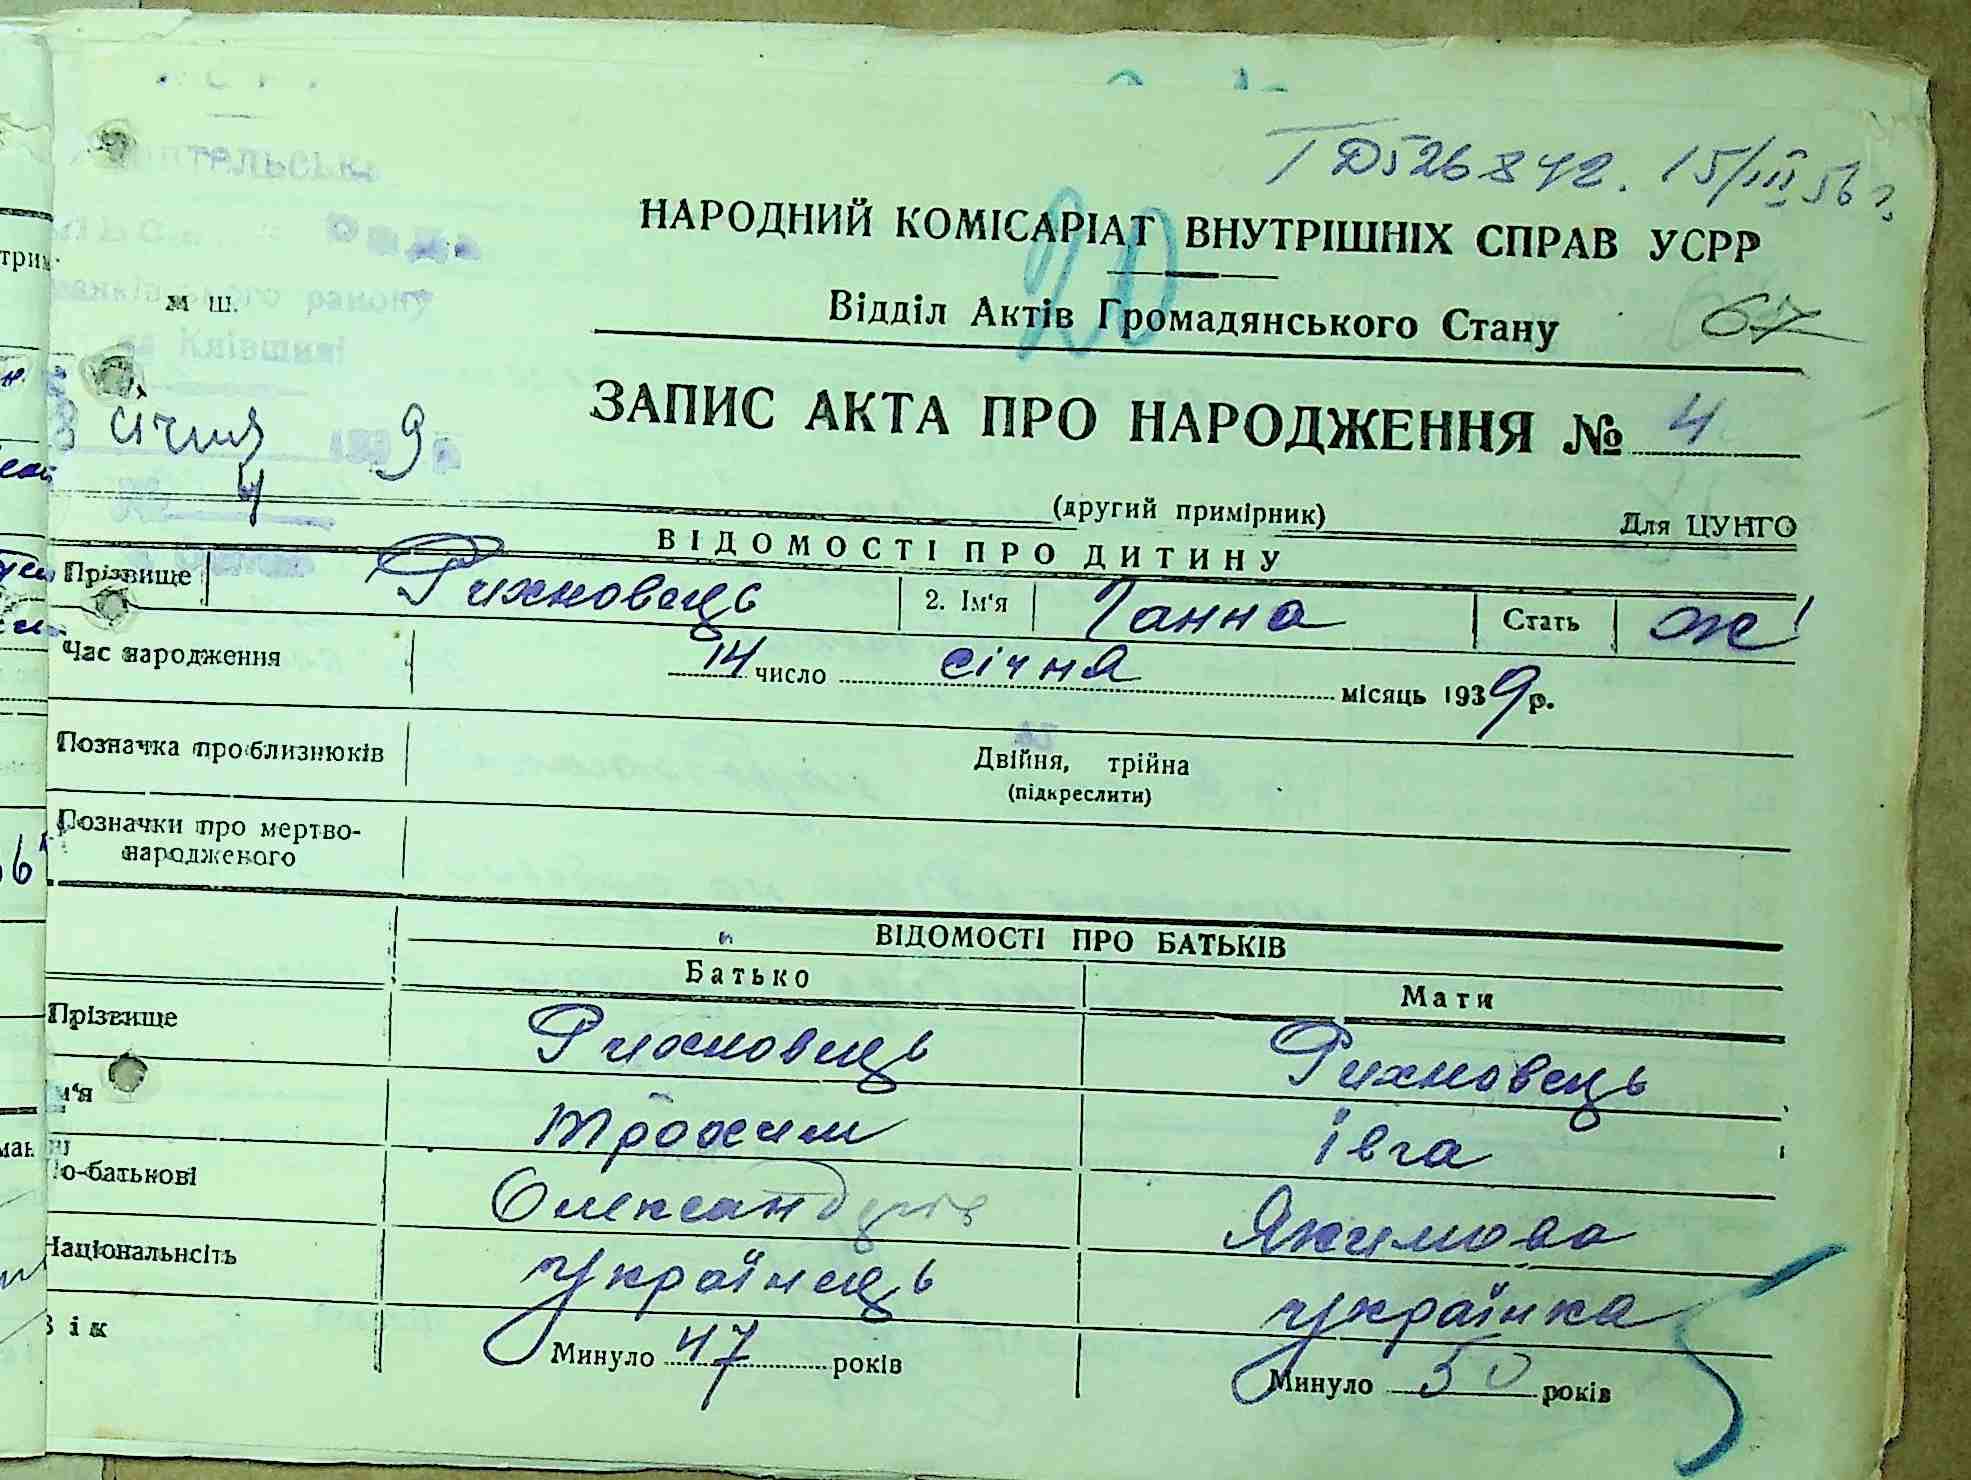 ГД526842. 15/III 56 г.
НАРОДНИЙ КОМІСАРІАТ ВНУТРІШНІХ СПРАВ УСРР
20
м ш.
району
Київщині
Відділ Актів Громадянського Стану
67
ЗАПИС АКТА ПРО НАРОДЖЕННЯ № 4
січня 1939 р.
4
(другий примірник)
Для ЦУНГО
ВІДОМОСТІ ПРО ДИТИНУ
Прізвище Рихновець 2. Ім'я Ганна Стать ж
Час народження 14 число січня місяць 1939 р.
Позначка про близнюків Двійня, трійна
(підкреслити)
Позначки про мертво-
народженого
ВІДОМОСТІ ПРО БАТЬКІВ
Батько Мати
Прізвище Рихновець Рихновець
м'я Трохим Івга
о-батькові Олександрів Якимова
Національнсіть українець українка
Вік Минуло 47 років Минуло 50 років